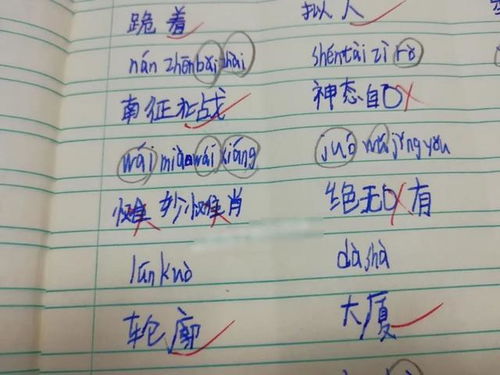 跪着 拟人
nán zhēn běi zhài shéntài zì rò
南征北战 神态自口
wái miào wái xiāng juó wú jǐng yǒu
惟妙惟肖 绝无口有
lún kuò dàshà
轮廓 大厦